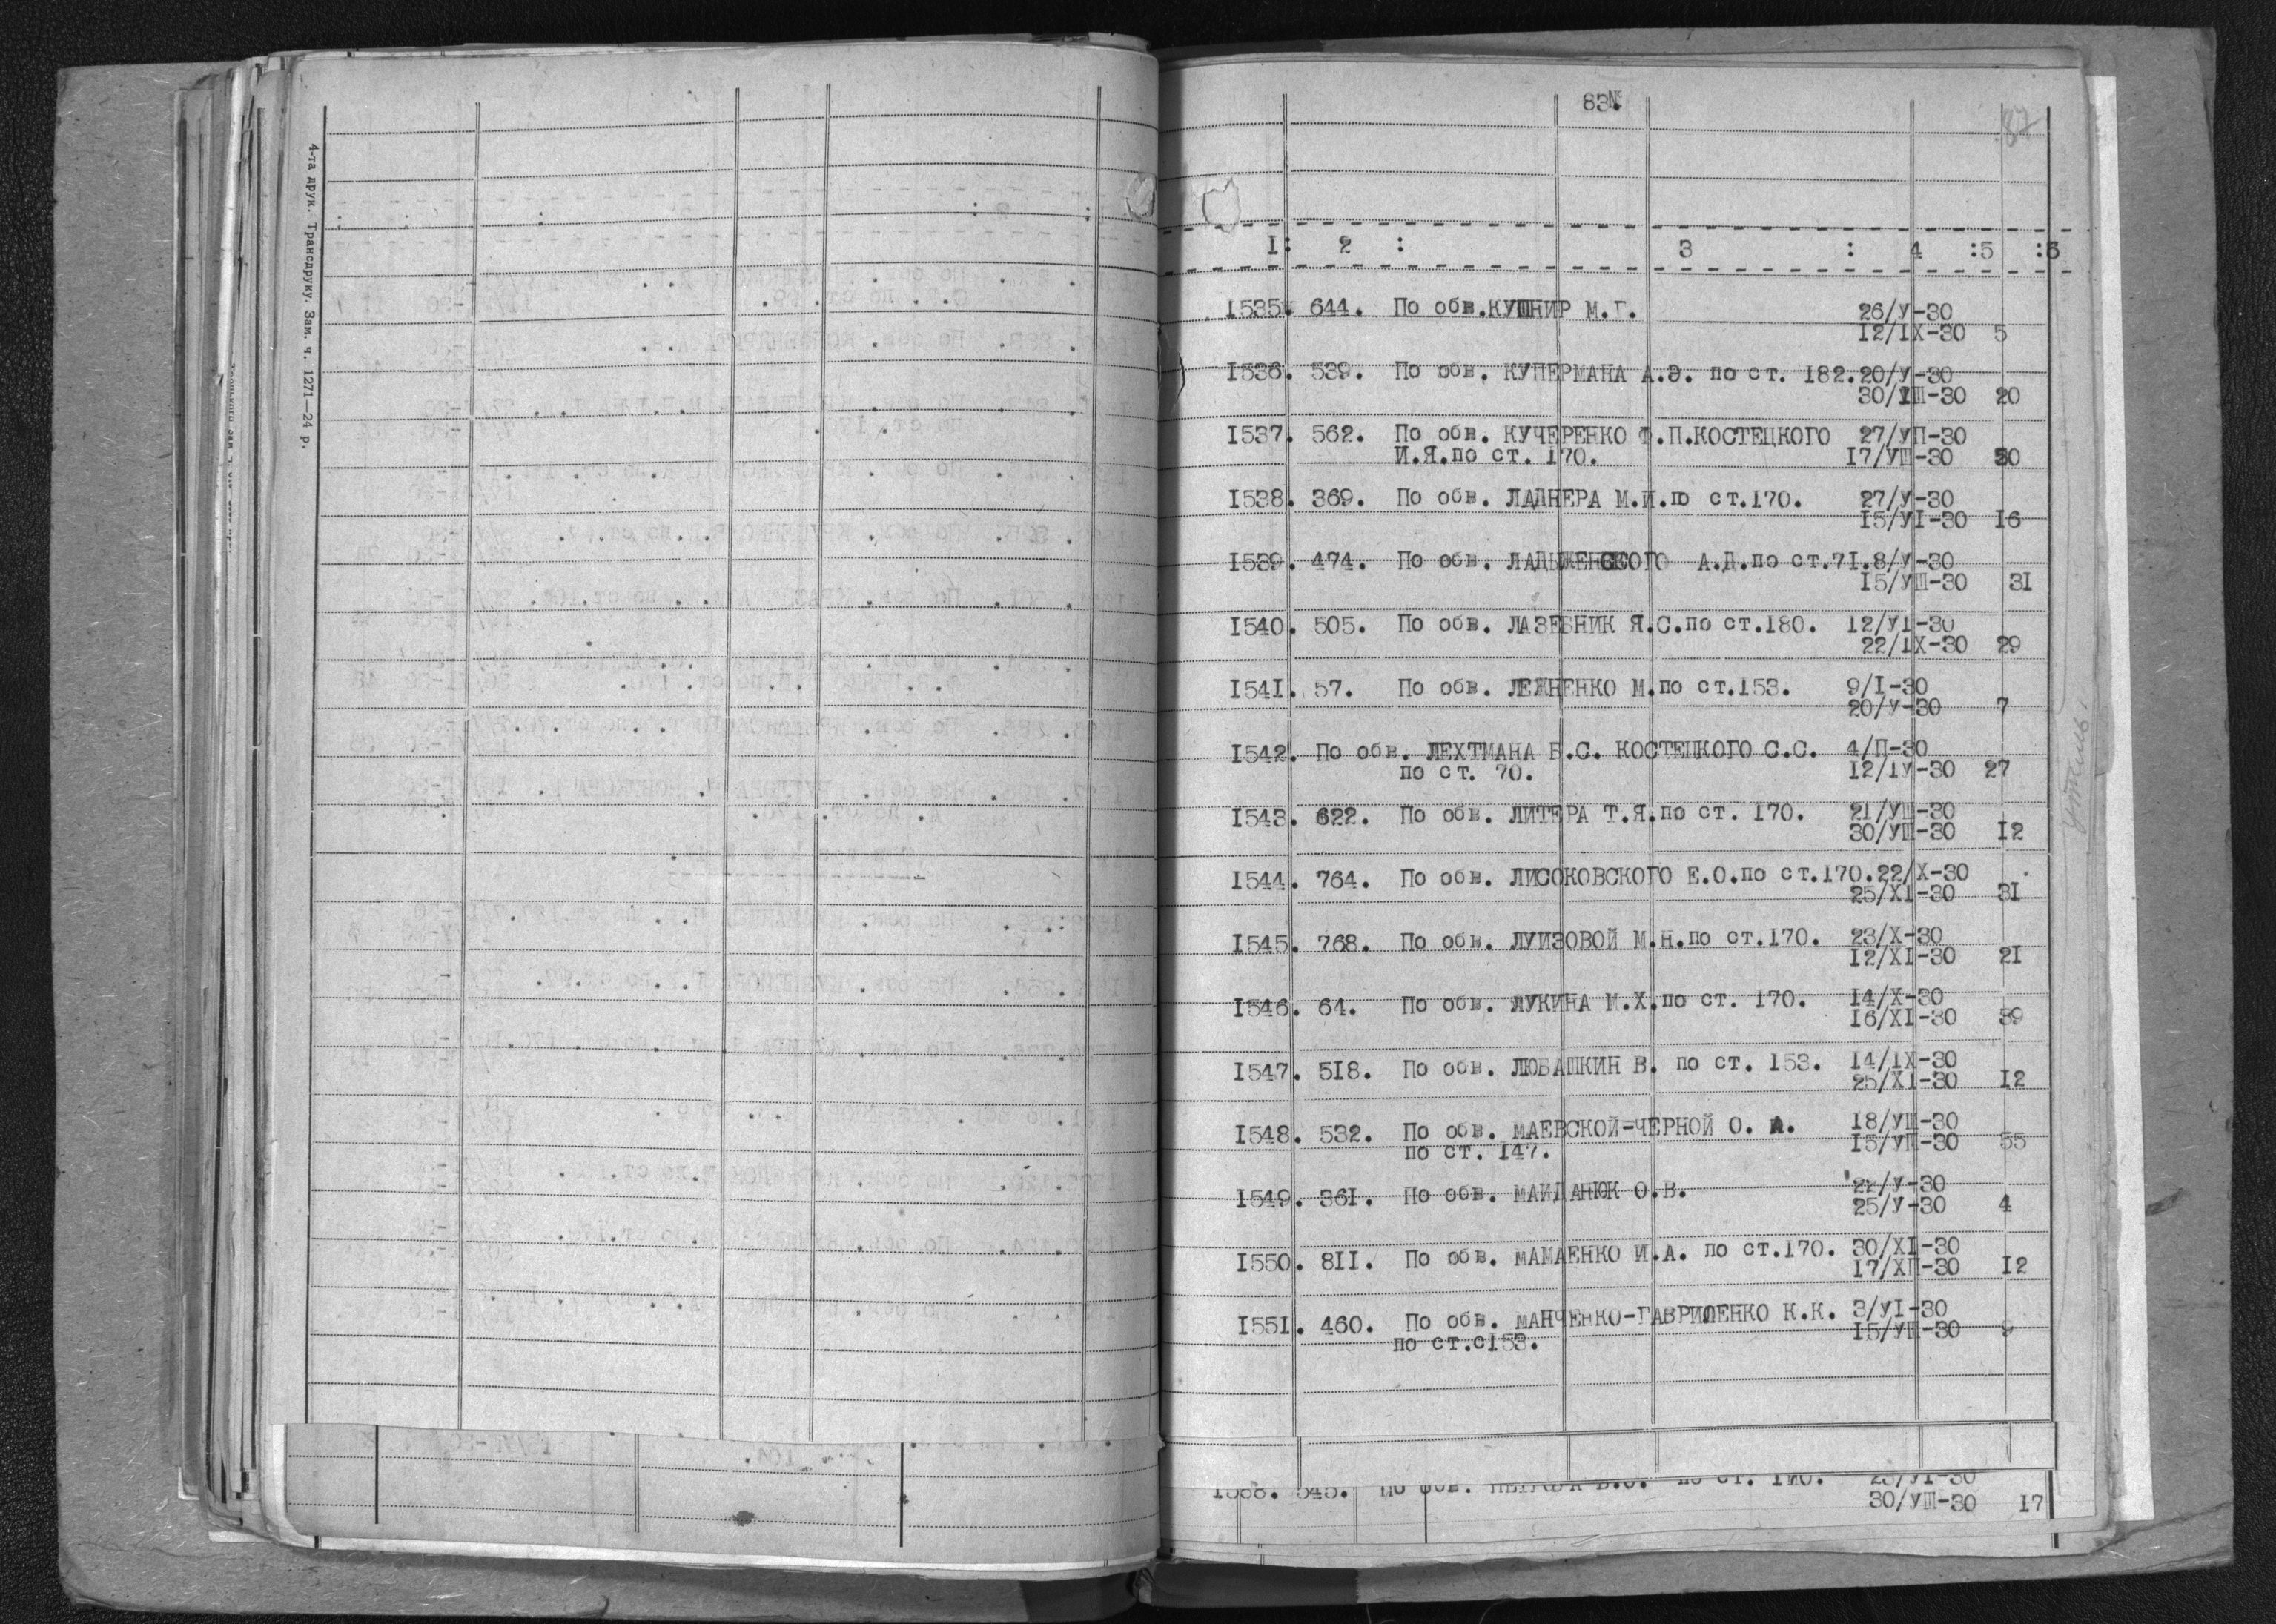 4-та друк. Трансдруку. Зам. ч. 1271—24 р.
83.
№
87
I: 2 : 3 : 4 :5 :6
I535. 644. По обв.КУШНИР М.Г. 26/У-30
I2/IХ-30 5
I536. 539. По обв. КУПЕРМАНА А.Э. по ст. I82.20/У-30
30/УШ-30 20
I537. 562. По обв. КУЧЕРЕНКО Ф.П.КОСТЕЦКОГО 27/УП-30
И.Я.по ст. I70. I7/УШ-30 30
I538. 369. По обв. ЛАДНЕРА М.И.по ст.I70. 27/У-30
I5/УI-30 I6
I539. 474. По обв. ЛАДЫЖЕНСКОГО А.Д.по ст.7I.8/У-30
I5/УШ-30 3I
I540. 505. По обв. ЛАЗЕБНИК Я.С.по ст.I80. I2/УI-30
22/IХ-30 29
I54I. 57. По обв. ЛЕЖНЕНКО М.по ст.I53. 9/I-30
20/У-30 7
I542. По обв. ЛЕХТМАНА Б.С. КОСТЕЦКОГО С.С. 4/П-30
по ст. 70. I2/IУ-30 27
I543. 622. По обв. ЛИТЕРА Т.Я.по ст. I70. 2I/УШ-30
30/УШ-30 I2
I544. 764. По обв. ЛИСОКОВСКОГО Е.О.по ст.I70.22/Х-30
25/ХI-30 3I
I545. 768. По обв. ЛУИЗОВОЙ М.Н.по ст.I70. 23/Х-30
I2/ХI-30 2I
I546. 64. По обв. ЛУКИНА М.Х.по ст. I70. I4/Х-30
I6/ХI-30 39
I547. 5I8. По обв. ЛЮБАШКИН В. по ст. I53. I4/IХ-30
25/ХI-30 I2
I548. 532. По обв. МАЕВСКОЙ-ЧЕРНОЙ О. А. I8/УШ-30
по ст. I47. I5/УП-30 55
I549. 36I. По обв. МАЙДАНЮК О.В. 22/У-30
25/У-30 4
I550. 8II. По обв. МАМАЕНКО И.А. по ст.I70. 30/ХI-30
I7/ХП-30 I2
I55I. 460. По обв. МАНЧЕНКО-ГАВРИЛЕНКО К.К. 3/УI-30
по ст.сI53. I5/УП-30 9
I568. 545. По обв. по ст. I70. 23/УI-30
30/УШ-30 I7